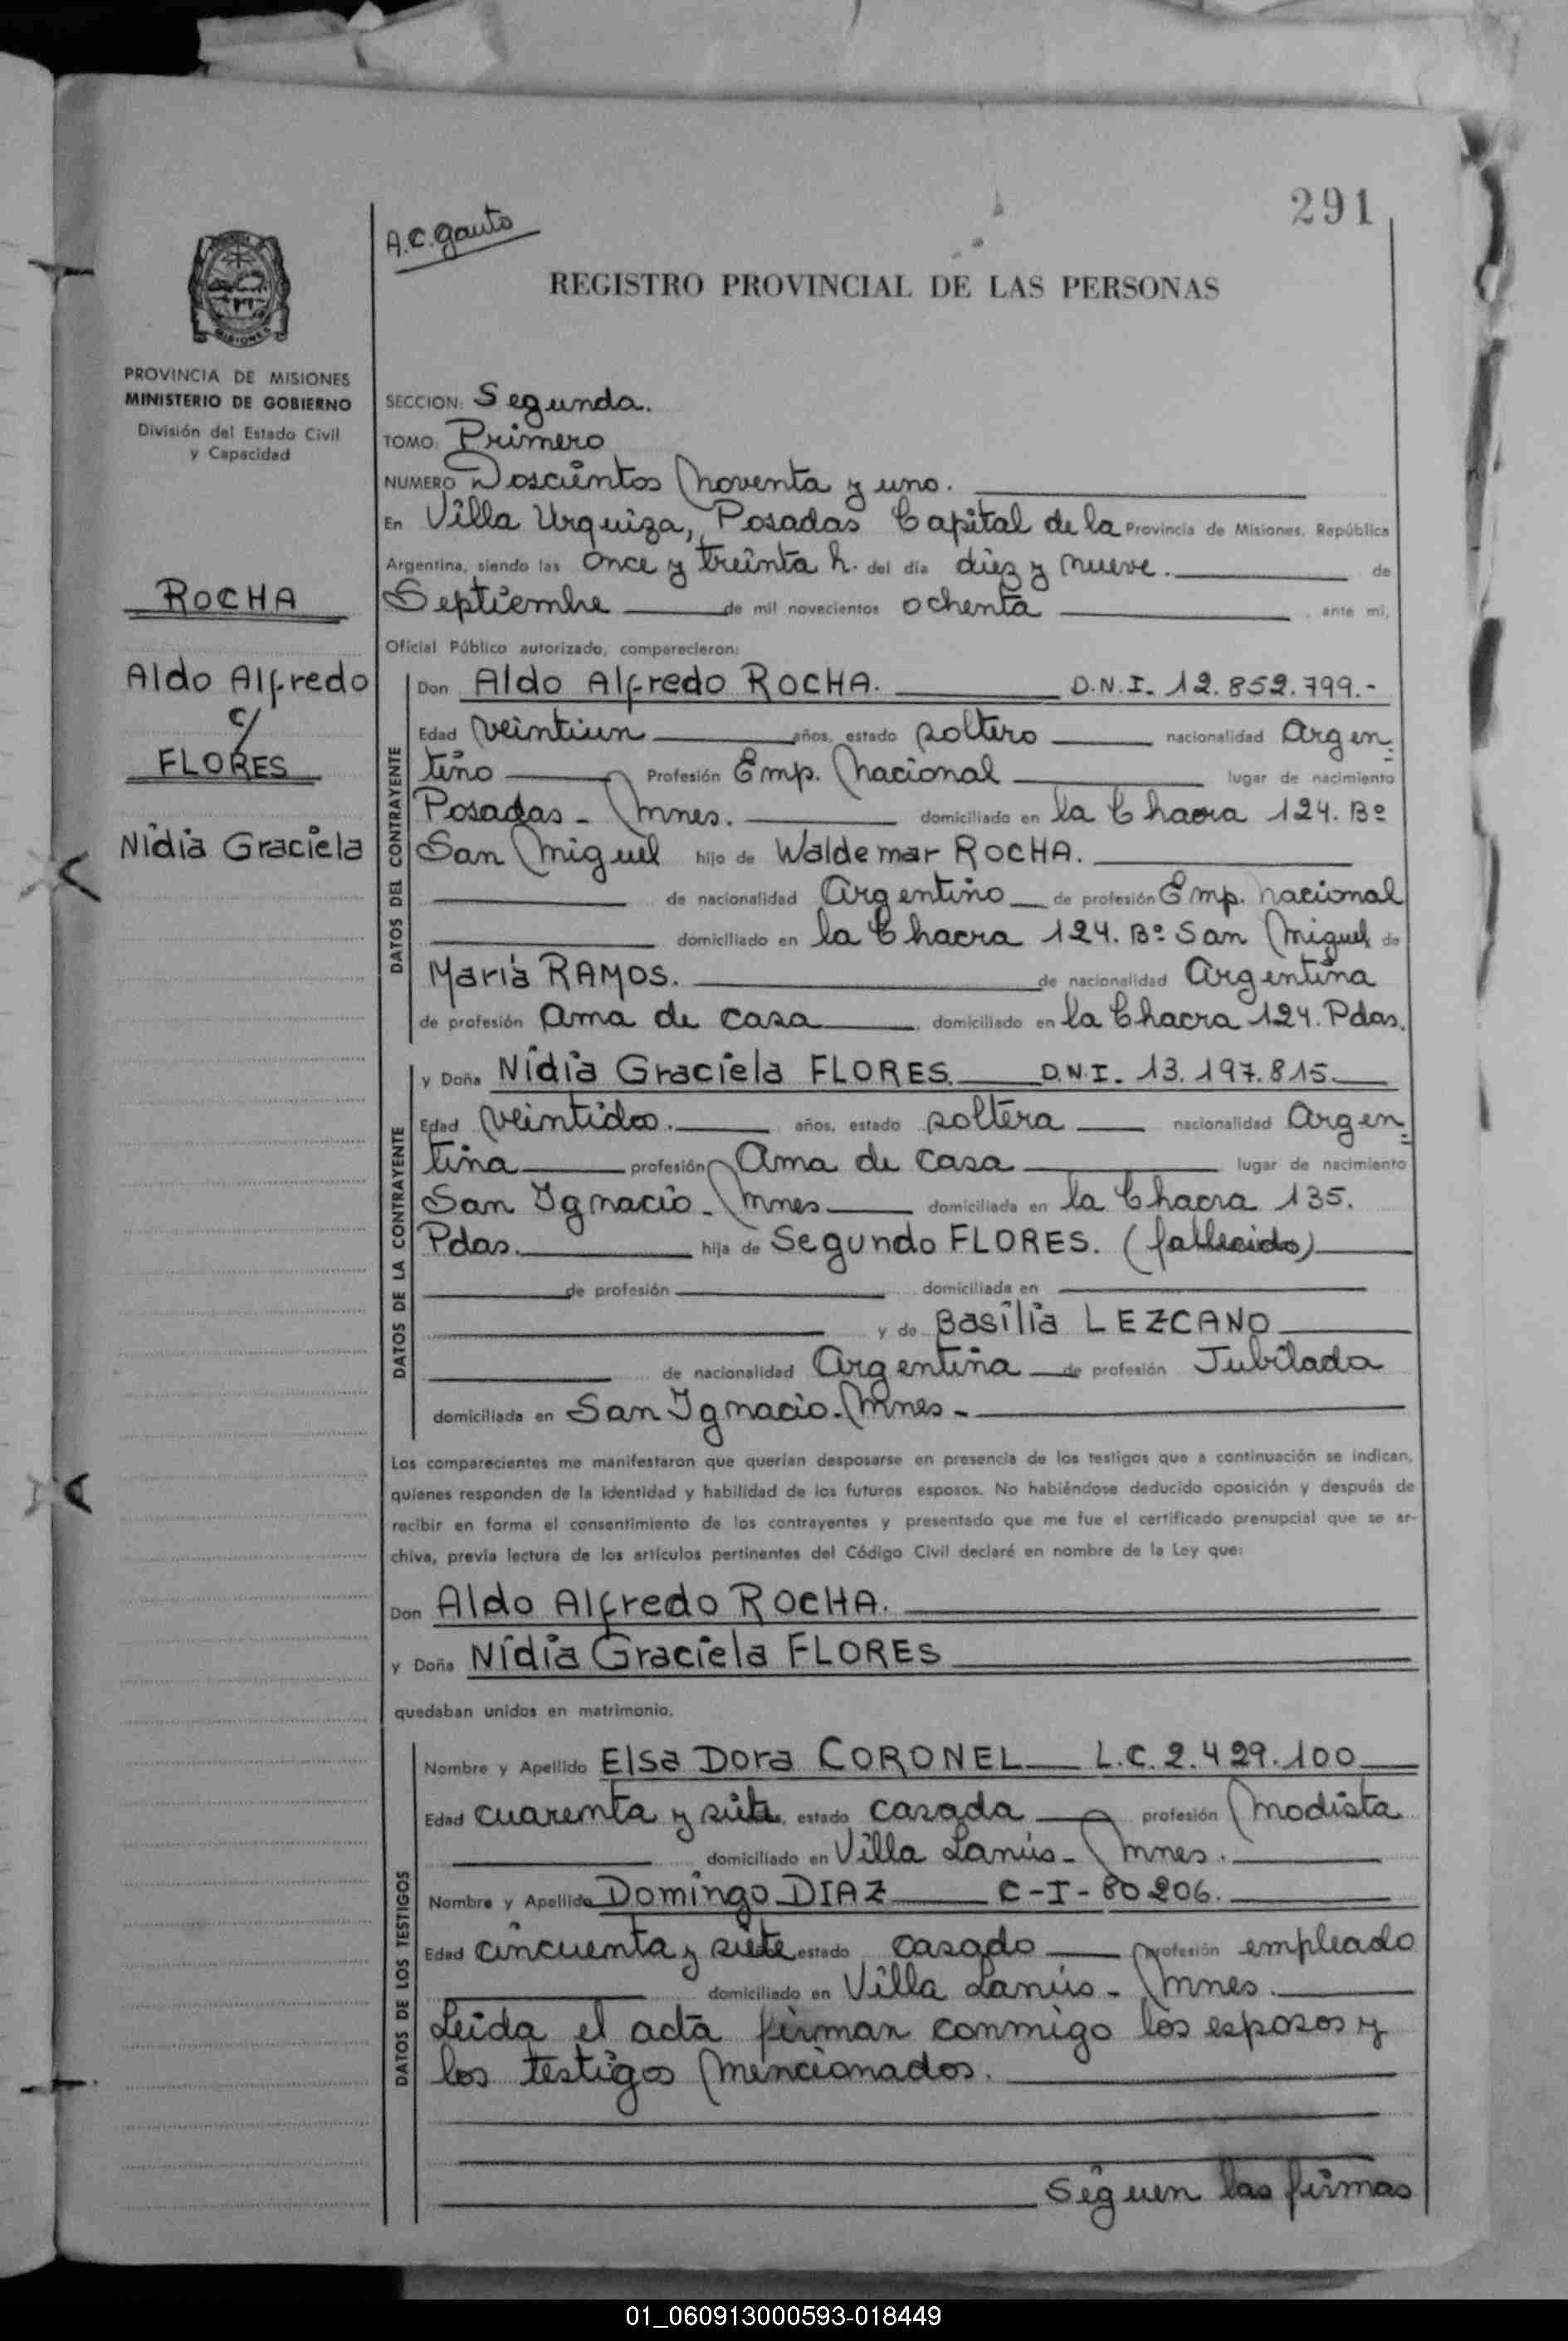 291
A.C. Gauto
REGISTRO PROVINCIAL DE LAS PERSONAS
MISIONES
PROVINCIA DE MISIONES
MINISTERIO DE GOBIERNO
División del Estado Civil
y Capacidad
ROCHA
Aldo Alfredo
c/
FLORES
Nidia Graciela
SECCION: Segunda.
TOMO: Primero
NUMERO Doscientos noventa y uno.
En Villa Urquiza, Posadas Capital de la Provincia de Misiones, República
Argentina, siendo las once y treinta h. del día diez y nueve. de
Septiembre de mil novecientos ochenta, ante mi,
Oficial Público autorizado, comparecieron:
DATOS DEL CONTRAYENTE
Don Aldo Alfredo ROCHA. D.N.I. 12.852.799.-
Edad veintiun años, estado soltero nacionalidad Argen=
tino Profesión Emp. Nacional lugar de nacimiento
Posadas - Mnes. domiciliado en la Chacra 124. Bº
San Miguel hijo de Waldemar ROCHA.
de nacionalidad Argentino de profesión Emp. nacional
domiciliado en la Chacra 124. Bº San Miguel de
Maria RAMOS. de nacionalidad Argentina
de profesión Ama de casa, domiciliado en la Chacra 124. Pdas.
DATOS DE LA CONTRAYENTE
y Doña Nidia Graciela FLORES. D.N.I. 13.197.815.
Edad veintidos. años, estado soltera nacionalidad Argen=
tina profesión Ama de casa lugar de nacimiento
San Ignacio - Mnes domiciliada en la Chacra 135.
Pdas. hija de Segundo FLORES. (fallecido)
de profesión domiciliada en
y de Basilia LEZCANO
de nacionalidad Argentina de profesión Jubilada
domiciliada en San Ignacio - Mnes -
Los comparecientes me manifestaron que querían desposarse en presencia de los testigos que a continuación se indican,
quienes responden de la identidad y habilidad de los futuros esposos. No habiéndose deducido oposición y después de
recibir en forma el consentimiento de los contrayentes y presentado que me fue el certificado prenupcial que se ar-
chiva, previa lectura de los artículos pertinentes del Código Civil declaré en nombre de la Ley que:
Don Aldo Alfredo ROCHA.
y Doña Nidia Graciela FLORES
quedaban unidos en matrimonio.
DATOS DE LOS TESTIGOS
Nombre y Apellido Elsa Dora CORONEL L.C. 2.429.100
Edad cuarenta y siete, estado casada profesión Modista
domiciliado en Villa Lanús - Mnes.
Nombre y Apellido Domingo DIAZ C-I-80206.
Edad cincuenta y siete estado casado profesión empleado
domiciliado en Villa Lanús - Mnes.
Leida el acta firman conmigo los esposos y
los testigos mencionados.
Siguen las firmas
01_060913000593-018449